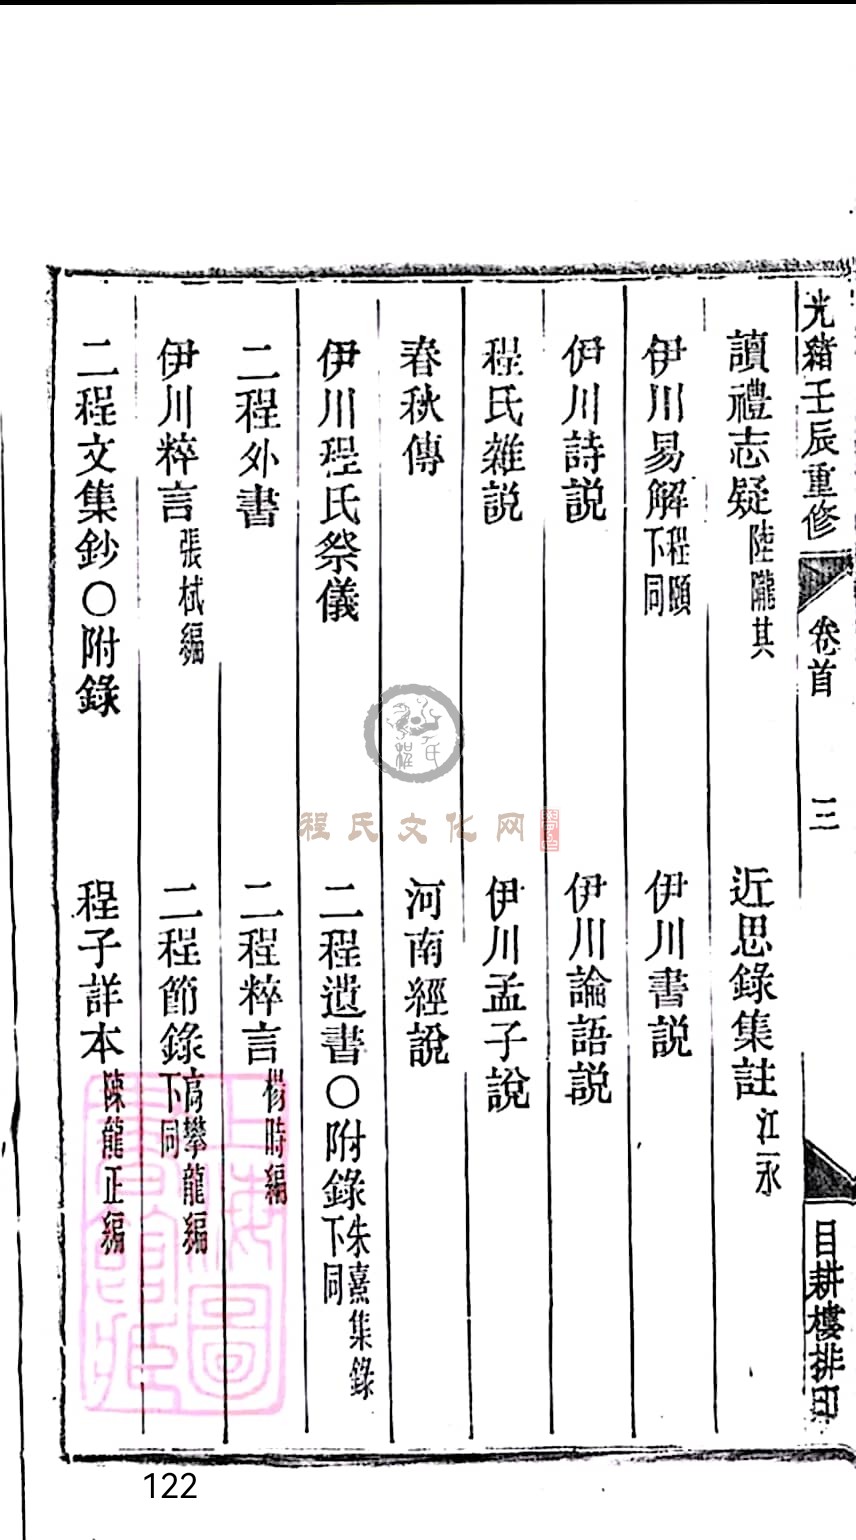 光緒壬辰重修 卷首 三 目耕樓排印
讀禮志疑 陸隴其 近思錄集註 江永
伊川易解 程頤下同 伊川書説
伊川詩説 伊川論語説
程氏雜説 伊川孟子說
春秋傳 河南經說
伊川程氏祭儀 二程遺書〇附錄 朱熹集錄下同
二程外書 二程粹言 楊時編
伊川粹言 張栻編 二程節錄 高攀龍編下同
二程文集鈔〇附錄 程子詳本 陳龍正編
程氏
程氏文化网
上海圖書館藏
122